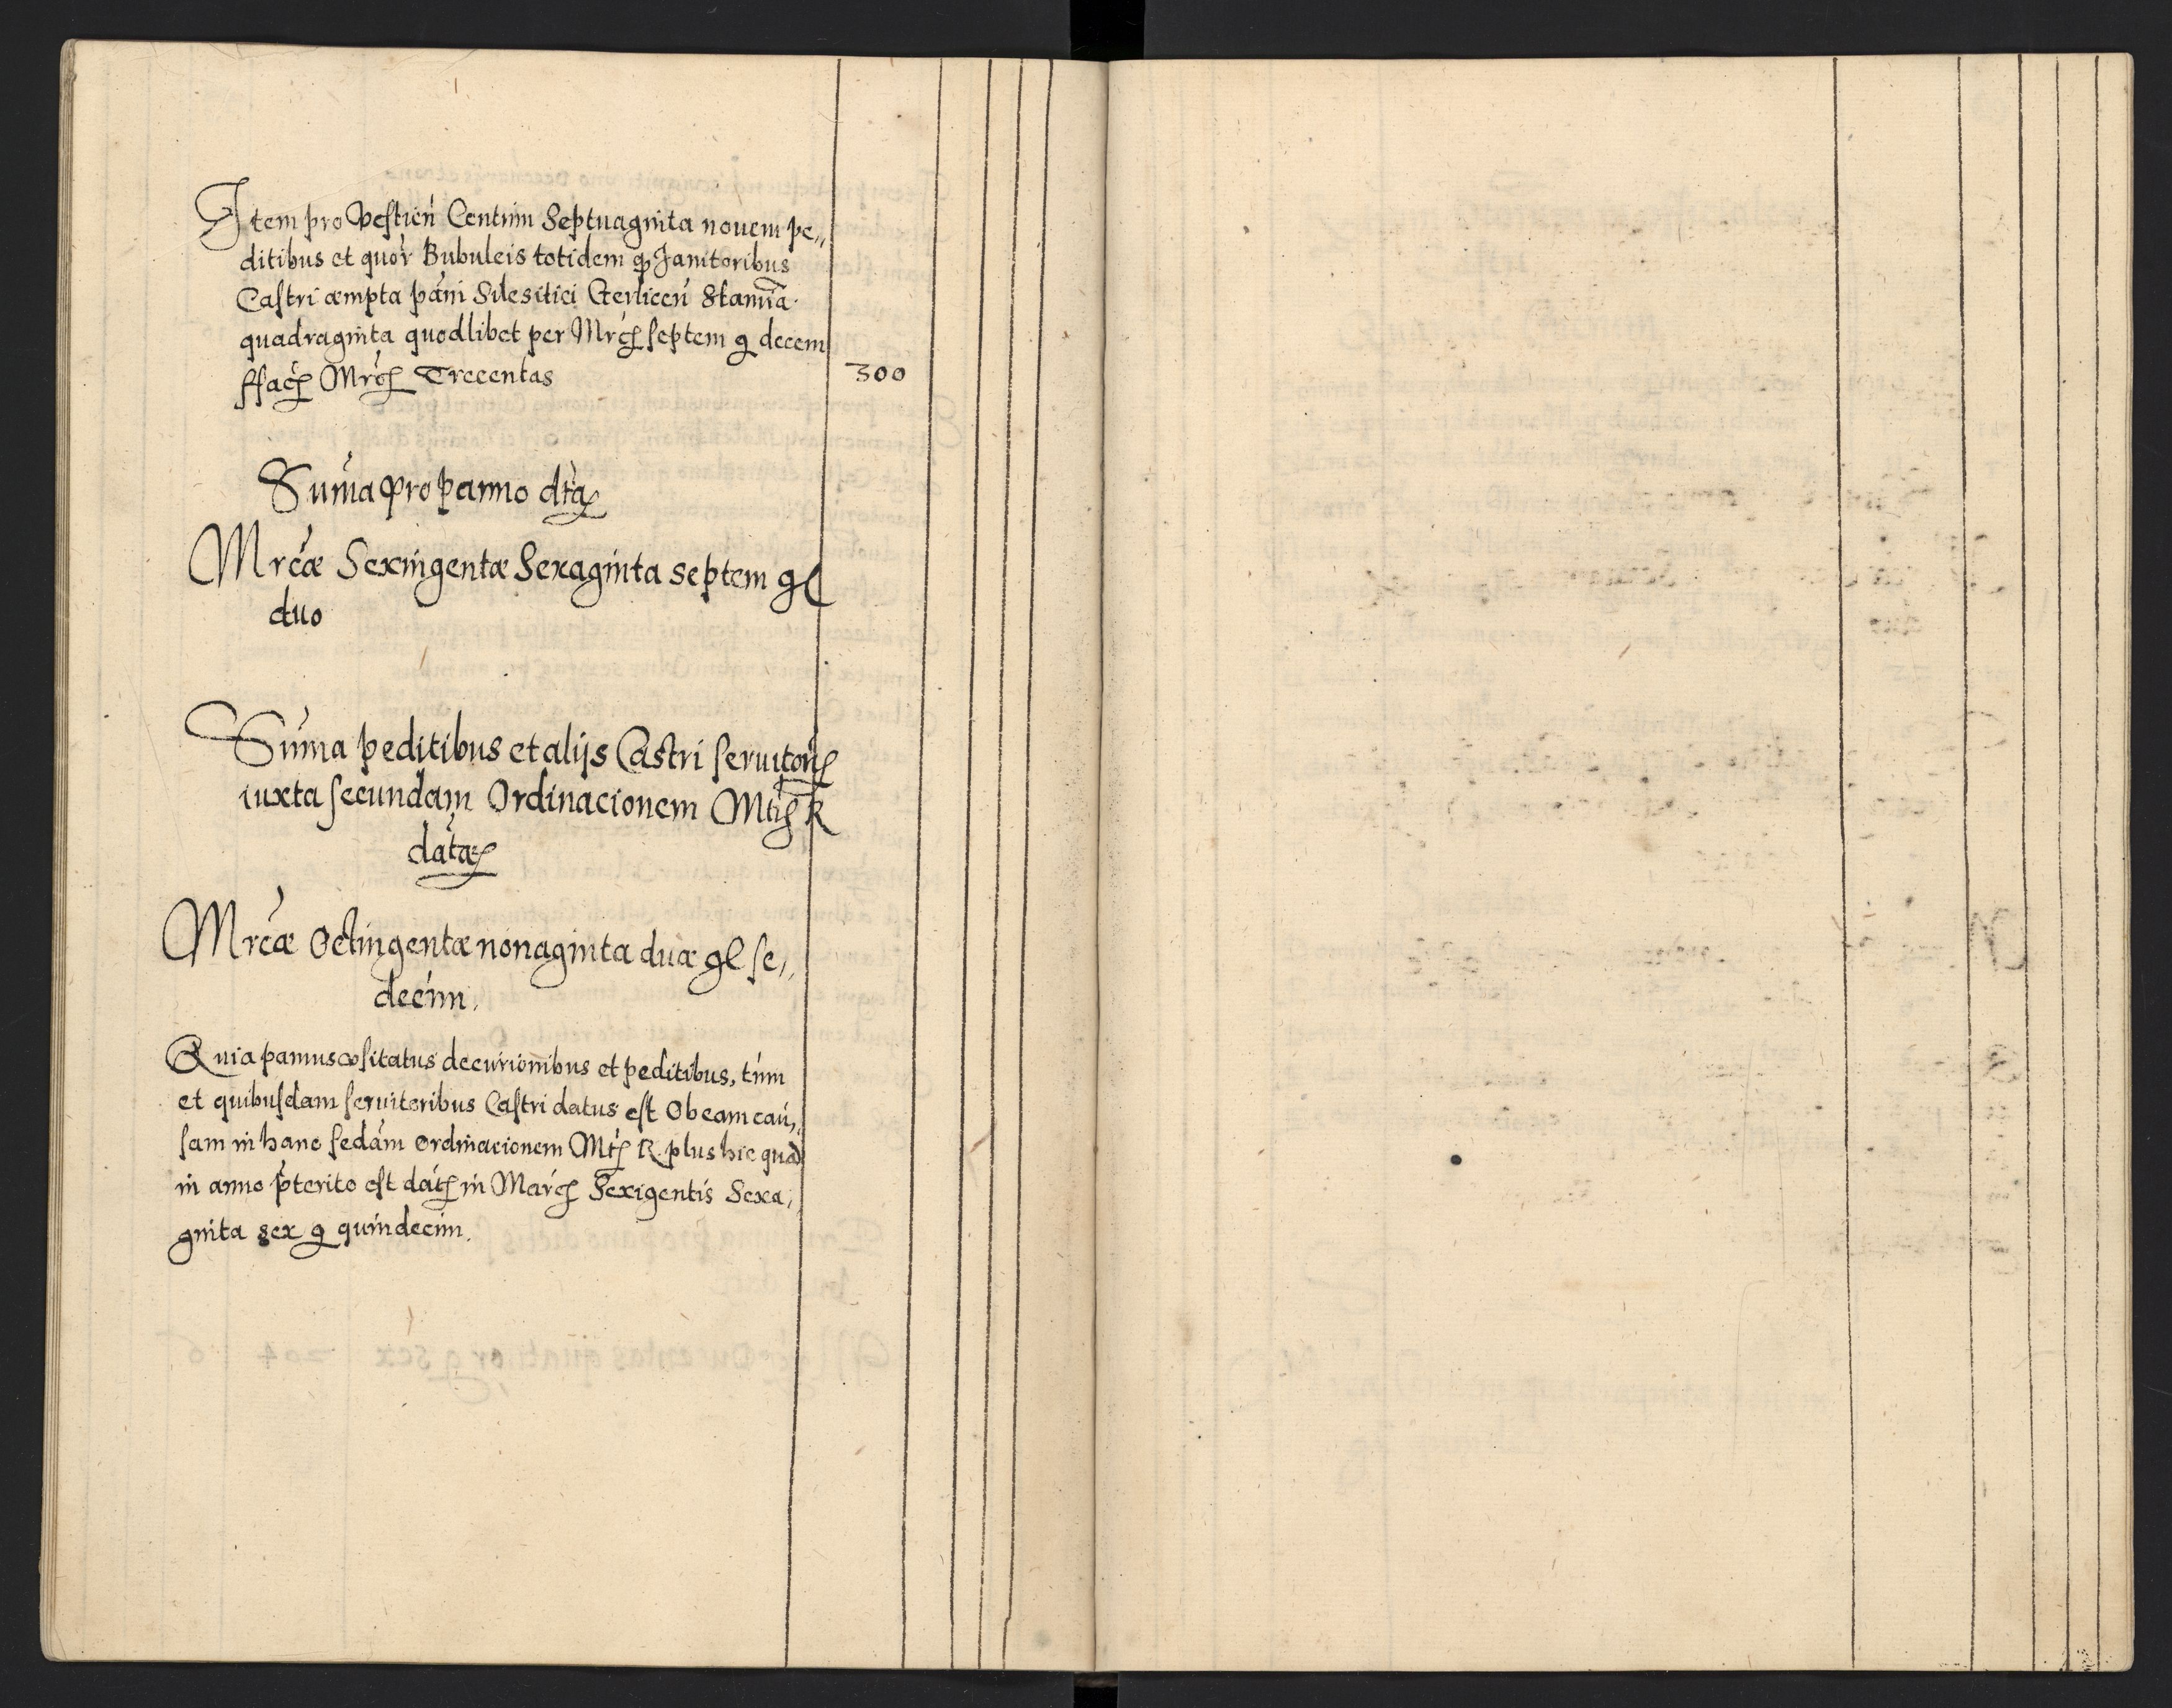 Item pro Vestień Centum Septuaginta nouem pe„
ditibus et quoŕ Bubuleis totidem qȝ Janitoribus
Castri æmpta páni Silesitici Gerliceń Stamīa
quadraginta quodlibet per Mrcȝ septem g decem
ffacȝ Mrcȝ Trecentas 300
Suma pro panno dtaȝ
Mrcæ Sexingentæ Sexaginta septem gl
duo
Suma peditibus et alijs Castri seruitoriȝ
iuxta secundam Ordinacionem Mtiȝ R
dataȝ
Mrcæ Octingentæ nonaginta duæ gl se„
decim.
Quia pannus usitatus decurionibus et peditibus, tum
et quibusdam seruitoribus Castri datus est Ob eam cau„
sam in hanc sedam Ordinacionem Mtȝ R plus hic quā
in anno pterito est datȝ in Marcȝ Sexigentis Sexa„
ginta sex g quindecim.